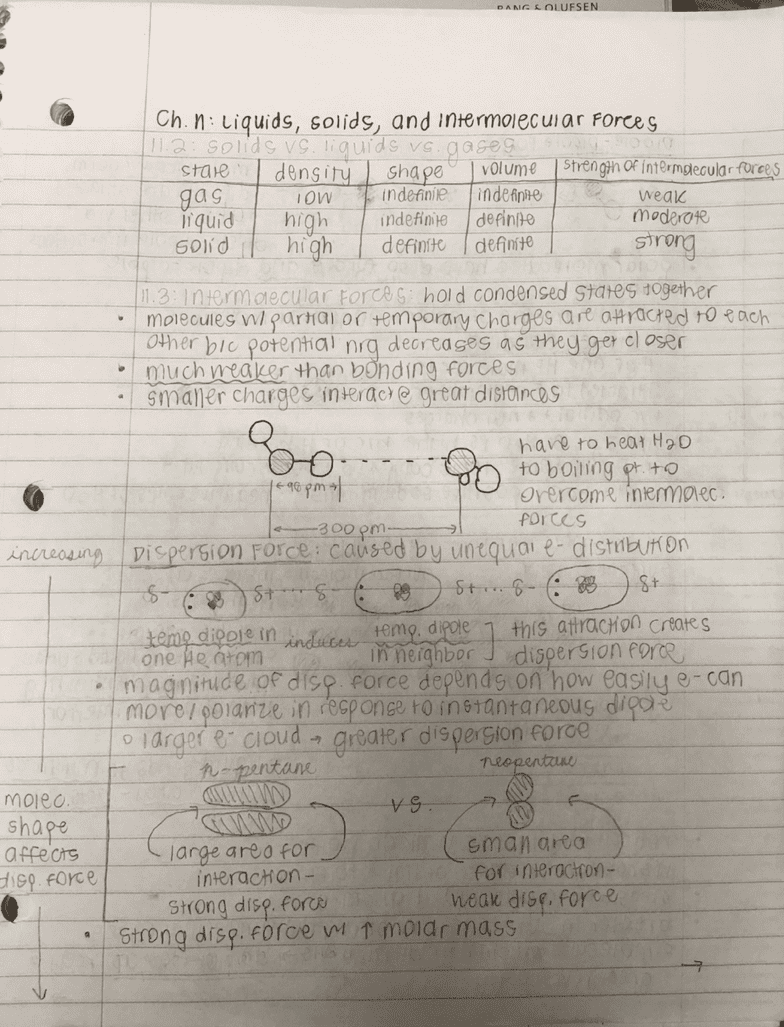 BANG & OLUFSEN
Ch. 11: Liquids, solids, and Intermolecular Forces
11.2: solids vs. liquids vs. gases
state density shape volume strength of intermolecular forces
gas low indefinite indefinite weak
liquid high indefinite definite moderate
solid high definite definite strong
11.3: Intermolecular Forces: hold condensed states together
• molecules w/ partial or temporary charges are attracted to each
other b/c potential nrg decreases as they get closer
• much weaker than bonding forces
• smaller charges interact @ great distances
have to heat H2O
to boiling pt. to
overcome intermolec.
forces
96 pm
300 pm
increasing
Dispersion Force: caused by unequal e- distribution
δ- δ+ ... δ- δ+ ... δ- δ+
temp dipole in induces temp. dipole this attraction creates
one He atom in neighbor dispersion force
• magnitude of disp. force depends on how easily e- can
move/polarize in response to instantaneous dipole
○ larger e- cloud → greater dispersion force
n-pentane vs. neopentane
molec.
shape
affects
disp. force
large area for
interaction-
strong disp. force
small area
for interaction-
weak disp. force
• strong disp. force w/ ↑ molar mass
→